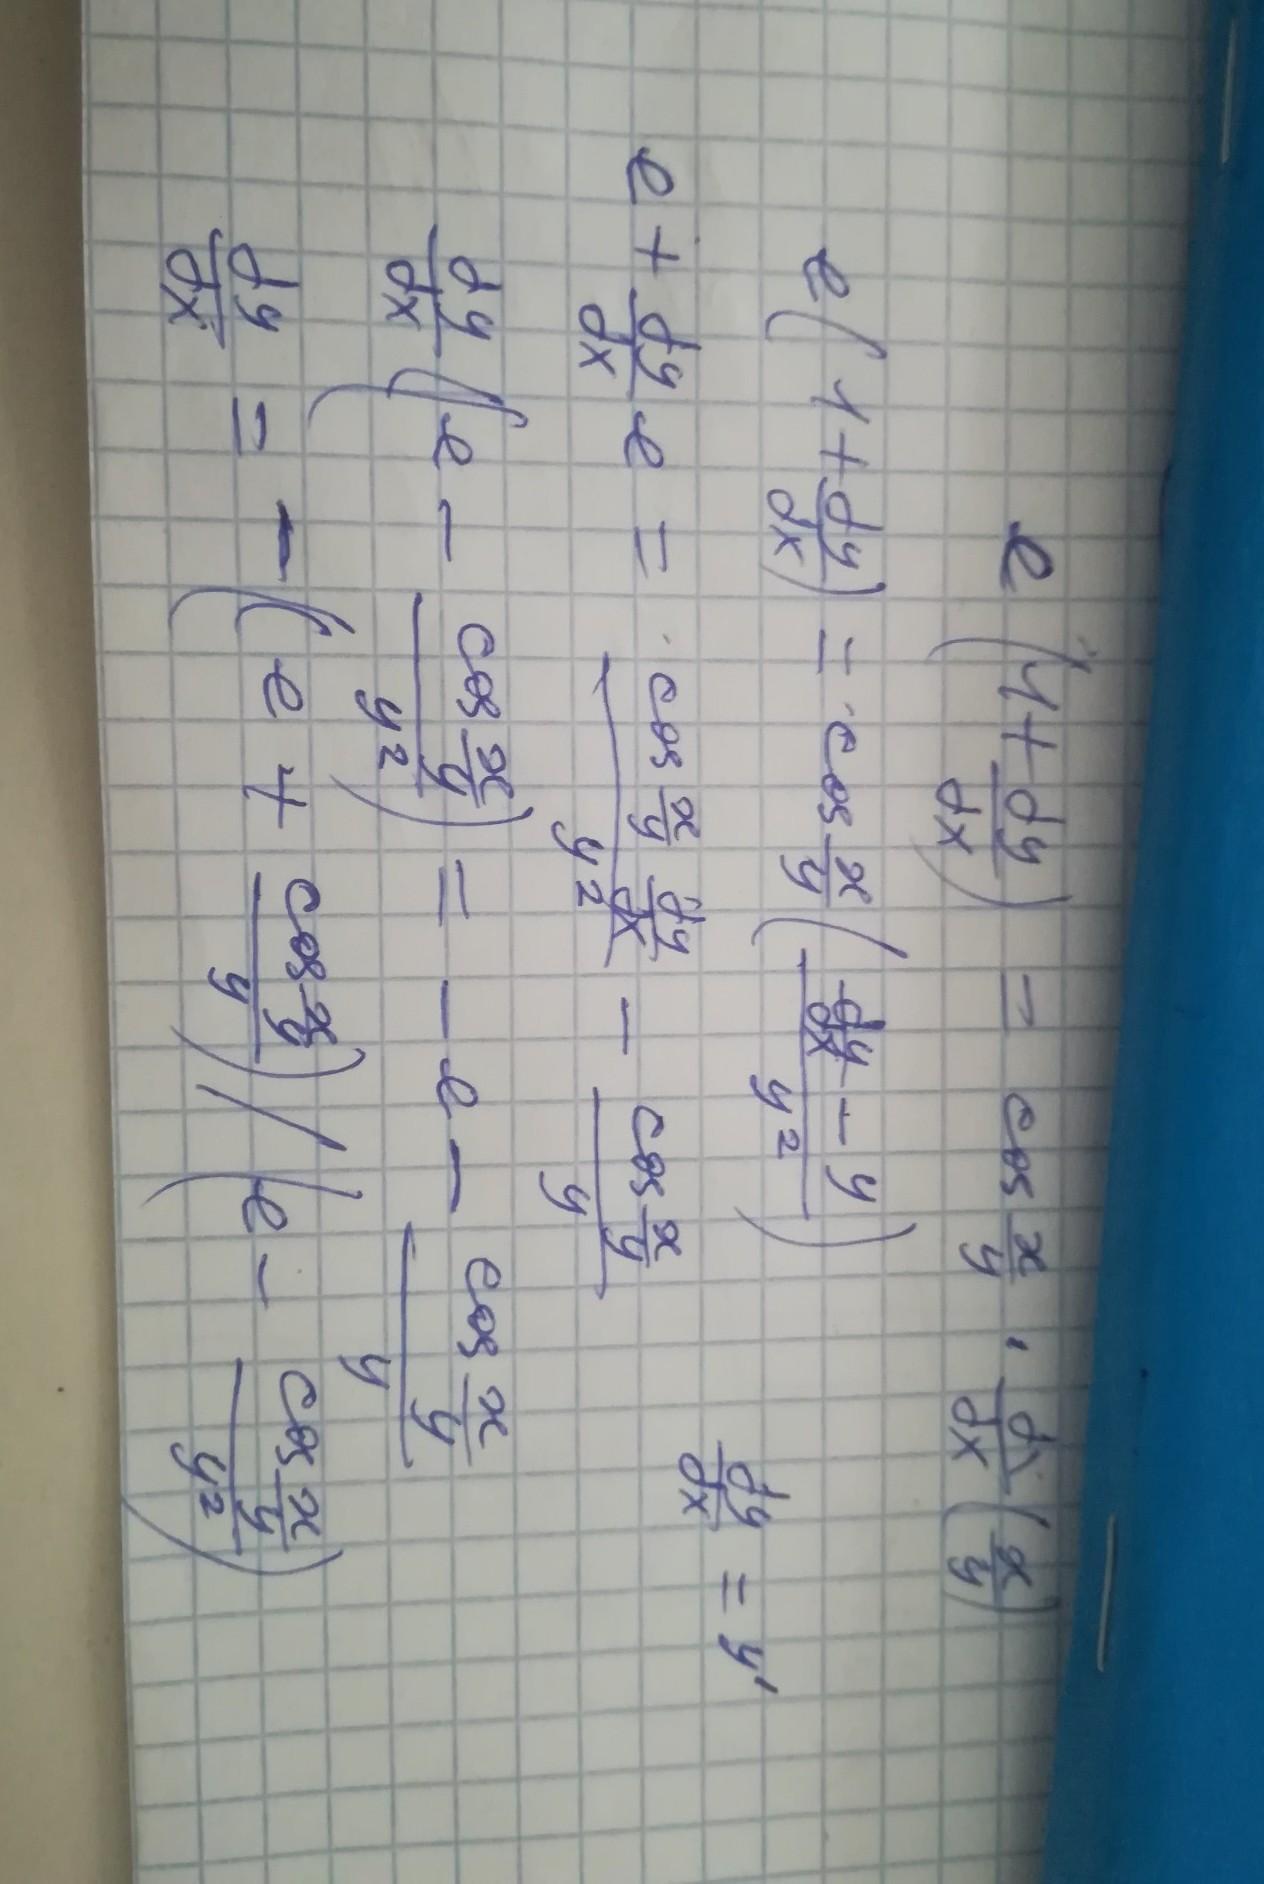 e(1+dy/dx) = cos x/y · d/dx(x/y)
e(1+dy/dx) = cos x/y ((dy/dx - y)/y²)
dy/dx = y'
e + dy/dx e = (cos x/y dy/dx)/y² - (cos x/y)/y
dy/dx (e - (cos x/y)/y²) = -e - (cos x/y)/y
dy/dx = -(e + (cos x/y)/y) / (e - (cos x/y)/y²)